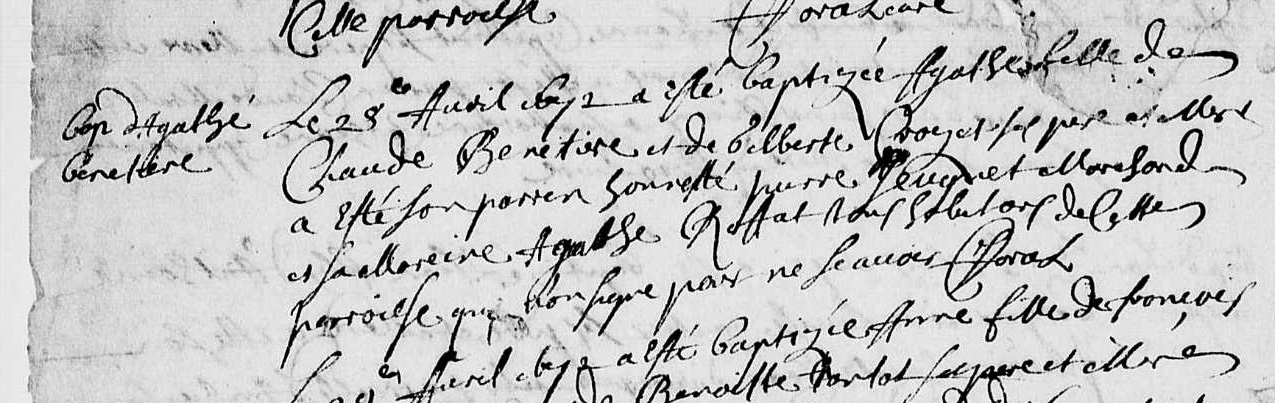 Cette parroisse
bap d'Agathe
benetiere
Le 28e Avril 1672 a esté baptizée Agathe fille de
Claude Benetiere et de Gilberte Crozet ses pere et Mere
a esté son parrin honnesté pierre Peugnet Marchand
et sa Mareine Agathe Roffat tous habitans de Cette
parroisse qui n'on signe pour ne scavoir
Avril 1672 a esté baptizée Anne fille de francois
Benoiste ses pere et Mere